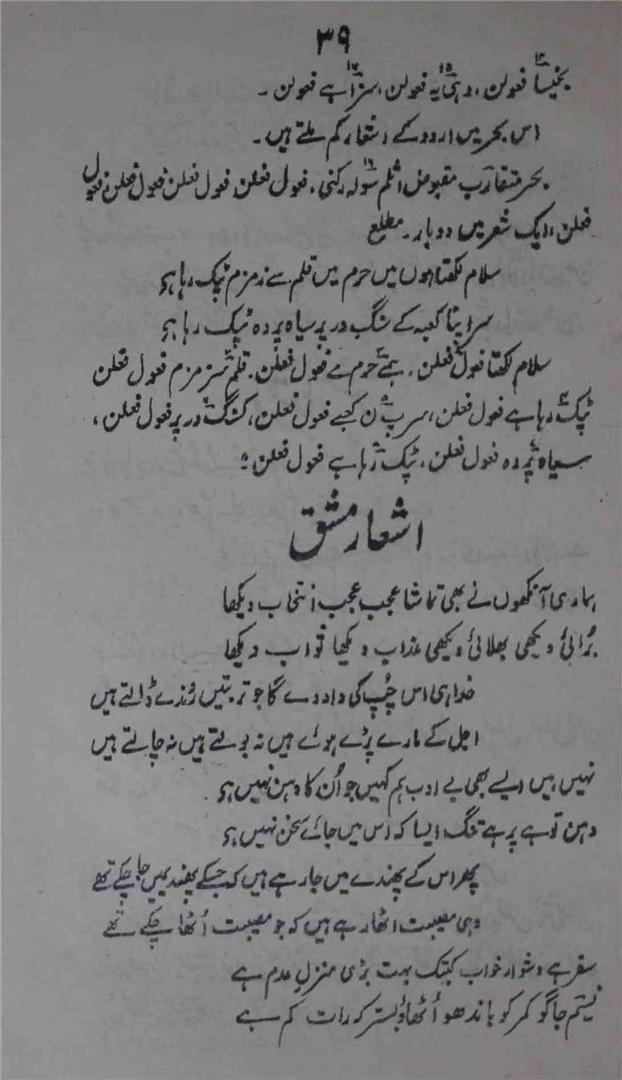 ۳۹
بخیسا فعولن، وہی یہ فعولن، سزا ہے فعولن ۔
اس بحر میں اردو کے اشعار کم ملتے ہیں۔
بحر متقارب مقبوض اثلم سولہ رکنی، فعول فعلن فعول فعلن فعول فعلن فعول
فعلن، ایک شعر میں دو بار۔ مطلع
سلام لکھتا ہوں میں حرم میں قلم سے زمزم ٹپک رہا ہو
سراپنا کعبہ کے سنگ در پر سیاہ پردہ ٹپک رہا ہو
سلام لکھتا فعول فعلن، ہمے حرم مے فعول فعلن۔ قلم سزمزم فعول فعلن
ٹپک رہا ہے فعول فعلن، سرپ ن کعبے فعول فعلن، کسنگ در پر فعول فعلن،
سیاہ پردہ فعول فعلن، ٹپک رہا ہے فعول فعلن
اشعار مشق
ہماری آنکھوں نے بھی تماشا عجب عجب انتخاب دیکھا
بُرائی دیکھی بھلائی دیکھی عذاب دیکھا ثواب دیکھا
خدا ہی اس چُپ کی داد دے گا جو تربتیں روندے ڈالتے ہیں
اجل کے مارے پڑے ہوئے ہیں نہ بولتے ہیں نہ چالتے ہیں
نہیں ہیں ایسے بھی بے ادب ہم کہیں جو اُن کا دہن نہیں ہو
دہن تو ہے پر ہے تنگ ایسا کہ اس میں جائے سخن نہیں ہو
پھر اس کے پھندے میں جا رہے ہیں کہ جسکے پھندیمیں جا چکے تھے
وہی مصیبت اٹھا رہے ہیں کہ جو مصیبت اُٹھا چکے تھے
سفر ہے دشوار خواب کبتک بہت بڑی منزلِ عدم ہے
نسیم جاگو کمر کو باندھو اُٹھاؤ بستر کہ رات کم ہے